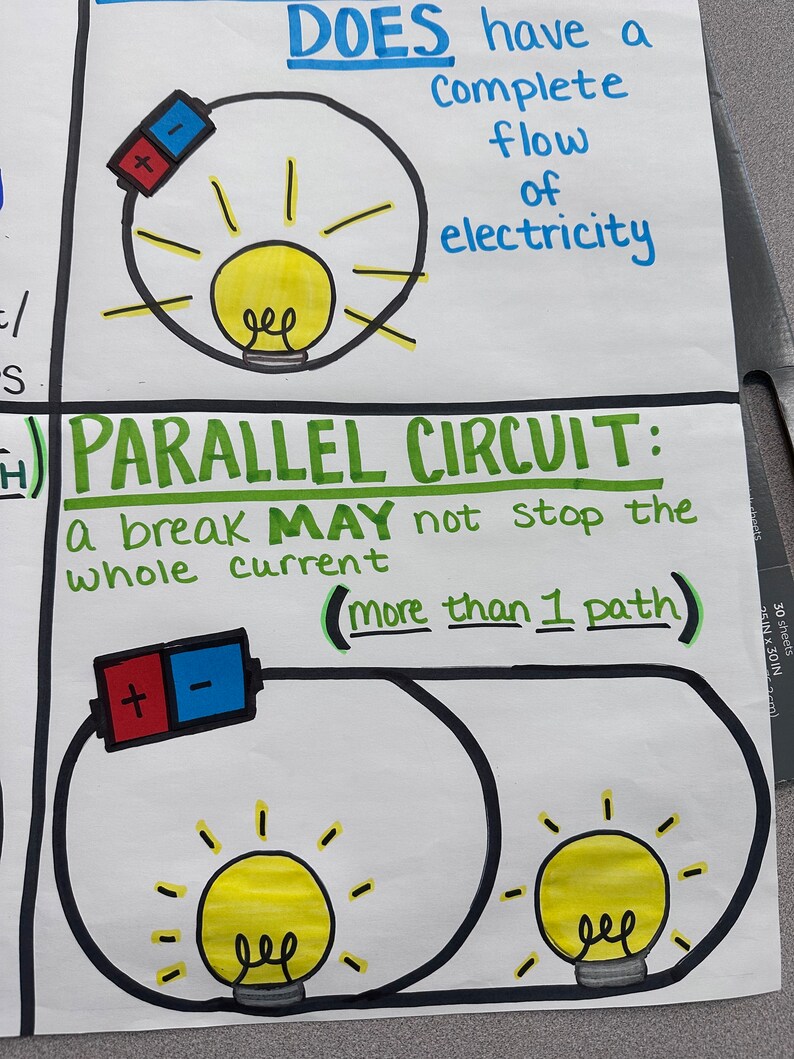 DOES have a
complete
flow
of
electricity
+ -
PARALLEL CIRCUIT:
a break MAY not stop the
whole current
(more than 1 path)
+ -
H)
30 sheets
25 IN x 30 IN